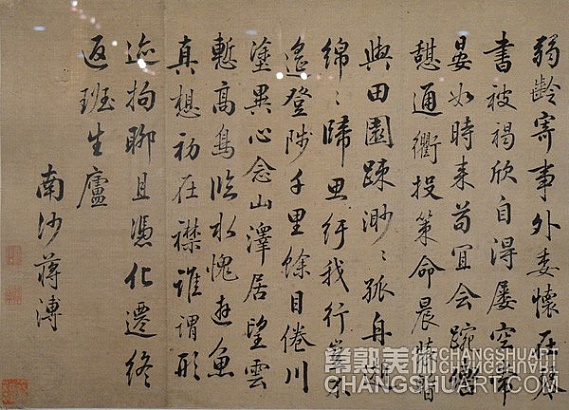 弱齡寄事外委懷在琴
書被褐欣自得屢空常
晏如時來苟冥會踠轡
憇通衢投策命晨暫
與田園踈渺〻孤舟
綿〻歸思紆我行豈不
遙登陟千里餘目倦川
塗異心念山澤居望雲
慙高鳥臨水愧遊魚
真想初在襟誰謂形
迹拘聊且憑化遷終
返班生廬
南沙蔣溥
常熟美術 CHANGSHUART
CHANGSHUART.COM